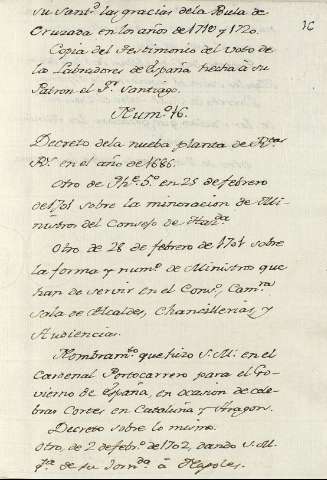 16
su Santd. las gracias dela Bula de
Cruzada en los años de 1719 y 1720.
Copia del Testimonio del voto de
los Labradores de España hecho à su
Patron el Sr. Santiago.
Numo. 16.
Decreto dela nueba planta de
Rs. en el año de 1686.
Otro de Phe. 5o. en 25 de febrero
de 1701 sobre la minoracion de Mi-
nistros del Consejo de Hazda.
Otro de 28 de febrero de 1701 sobre
la forma y numo. de Ministros que
han de servir en el Conso. Camra.
sala de Alcaldes, Chancillerias, y
Audiencias.
Nombramto. que hizo S. M. en el
Cardenal Portocarrero para el Go-
vierno de España, en ocasion de cele-
brar Cortes en Cataluna y Aragon.
Decreto sobre lo mismo.
Otro, de 2 de febro. de 1702, dando S. M.
qta. de su Jornda. à Napoles.